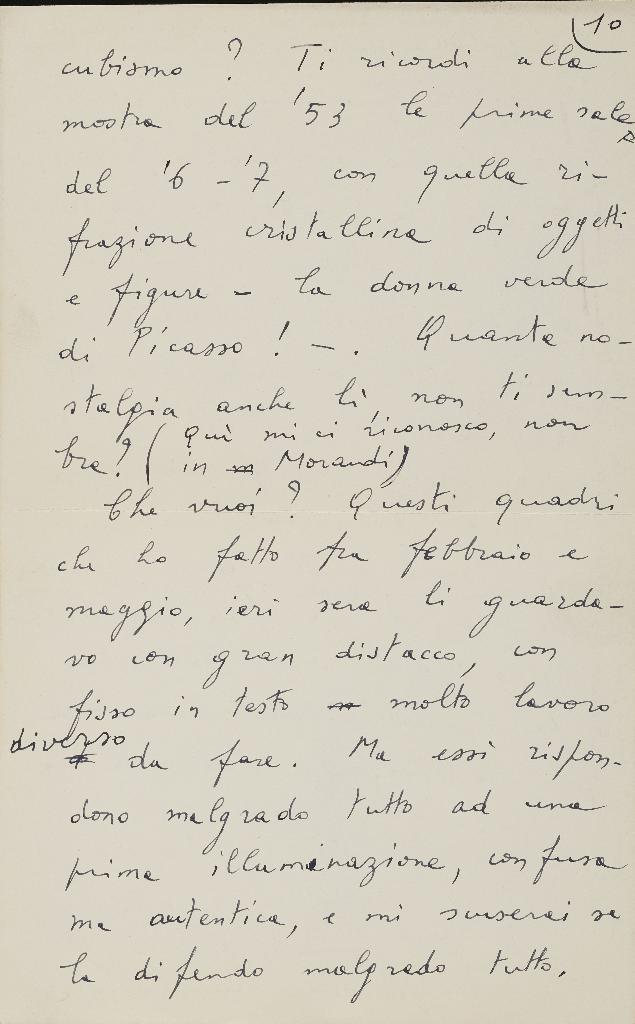 10
cubismo ? Ti ricordi alla
mostra del '53 le prime sale
del '6 - '7, con quella ri-
frazione cristallina di oggetti
e figure - la donna verde
di Picasso ! - . Quanta no-
stalgia anche lì, non ti sem-
bra? ( Quì mi ci riconosco, non
in Morandi)
Che vuoi ? Questi quadri
che ho fatto fra febbraio e
maggio, ieri sera li guarda-
vo con gran distacco, con
fisso in testo molto lavoro
diverso da fare. Ma essi rispon-
dono malgrado tutto ad una
prima illuminazione, confusa
ma autentica, e mi scuserai se
la difendo malgrado tutto.